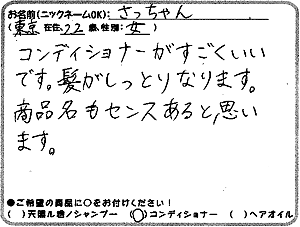 お名前(ニックネームOK): さっちゃん
(東京 在住、22 歳、性別: 女 )
コンディショナーがすごくいい
です。髪がしっとりなります。
商品名もセンスあると思い
ます。
●ご希望の商品に○をお付けください!
( )天陽ル君ノシャンプー (○)コンディショナー ( )ヘアオイル